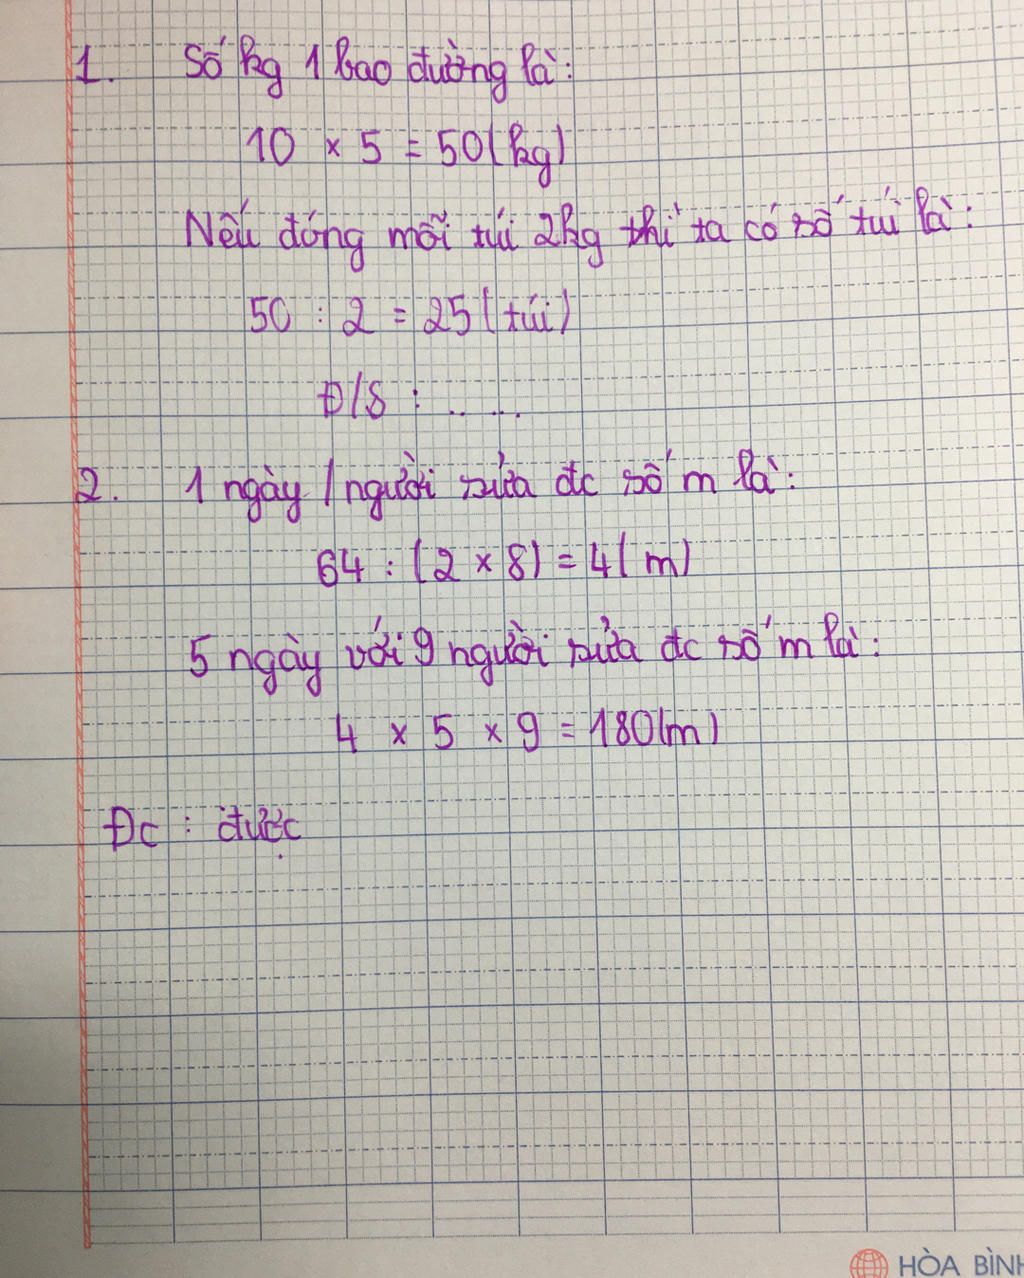 1. Số kg 1 bao đường là:
10 × 5 = 50 (kg)
Nếu đóng mỗi túi 2kg thì ta có số túi là:
50 : 2 = 25 (túi)
Đ/S : .. ...
2. 1 ngày 1 người sửa đc số m là:
64 : (2 × 8) = 4 (m)
5 ngày với 9 người sửa đc số m là:
4 × 5 × 9 = 180 (m)
Đc : được
HÒA BÌNH